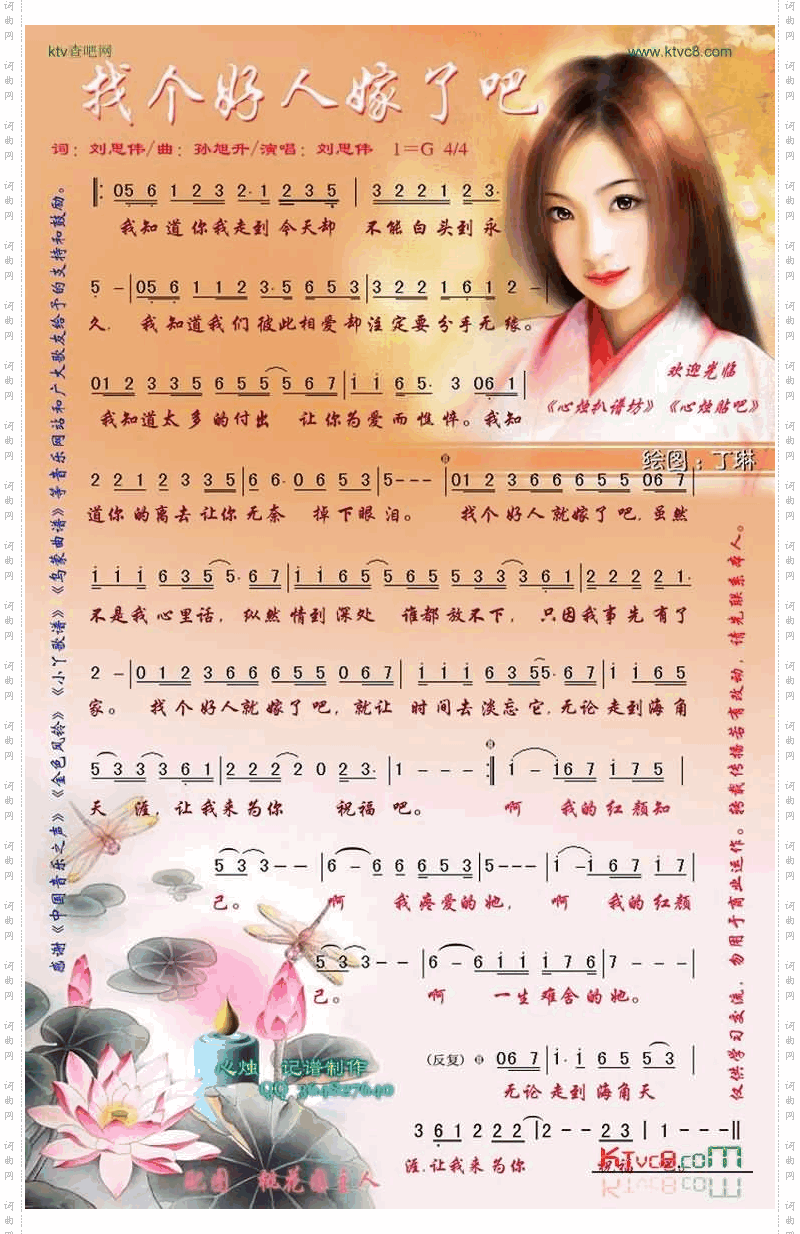 ktv查吧网
www.ktvc8.com
找个好人嫁了吧
词：刘思伟/曲：孙旭升/演唱：刘思伟 1=G 4/4
05 6 1 2 3 2· 1 2 3 5 | 3 2 2 1 2 3·
我知道你我走到今天却 不能白头到永
5 - | 05 6 1 1 2 3· 5 6 5 3 | 3 2 2 1 6 1 2 - |
久， 我知道我们彼此相爱却注定要分手无缘。
01 2 3 3 5 6 5 5 5 6 7 | i i 6 5· 3 06 1 |
我知道太多的付出 让你为爱而憔悴。我知
欢迎光临
《心烛扒谱坊》《心烛贴吧》
绘图：丁琳
2 2 1 2 3 3 5 | 6 6· 0 6 5 3 | 5 - - - | 01 2 3 6 6 6 5 5 06 7 |
道你的离去让你无奈 掉下眼泪。 找个好人就嫁了吧，虽然
i i i 6 3 5 5· 6 7 | i i 6 5 5 6 5 5 3 3 3 6 1 | 2 2 2 2 1·
不是我心里话，纵然情到深处 谁都放不下， 只因我事先有了
2 - | 0 1 2 3 6 6 6 5 5 0 6 7 | i i i 6 3 5 5· 6 7 | i i 6 5
家。 找个好人就嫁了吧，就让时间去淡忘它，无论走到海角
5 3 3 3 6 1 | 2 2 2 2 0 2 3· | 1 - - - :| i - i 6 7 i 7 5 |
天 涯，让我来为你 祝福吧。 啊 我的红颜知
5 3 3 - - | 6 - 6 6 6 5 3 | 5 - - - | i - i 6 7 i 7 |
己。 啊 我疼爱的她， 啊 我的红颜
5 3 3 - - | 6 - 6 i i i 7 6 | 7 - - - |
己。 啊 一生难舍的她。
(反复) 06 7 | i· i 6 5 5 3 |
无论走到海角天
3 6 1 2 2 2 | 2 - - 2 3 | 1 - - - ||
涯，让我来为你
KTvc8.com
心烛 记谱制作
QQ 364827640
感谢《中国音乐之声》《金色风铃》《小丫歌谱》《乌蒙曲谱》等音乐网站和广大歌友给予的支持和鼓励。
仅供学习交流，勿用于商业运作。转载传播若有改动，请先联系本人。